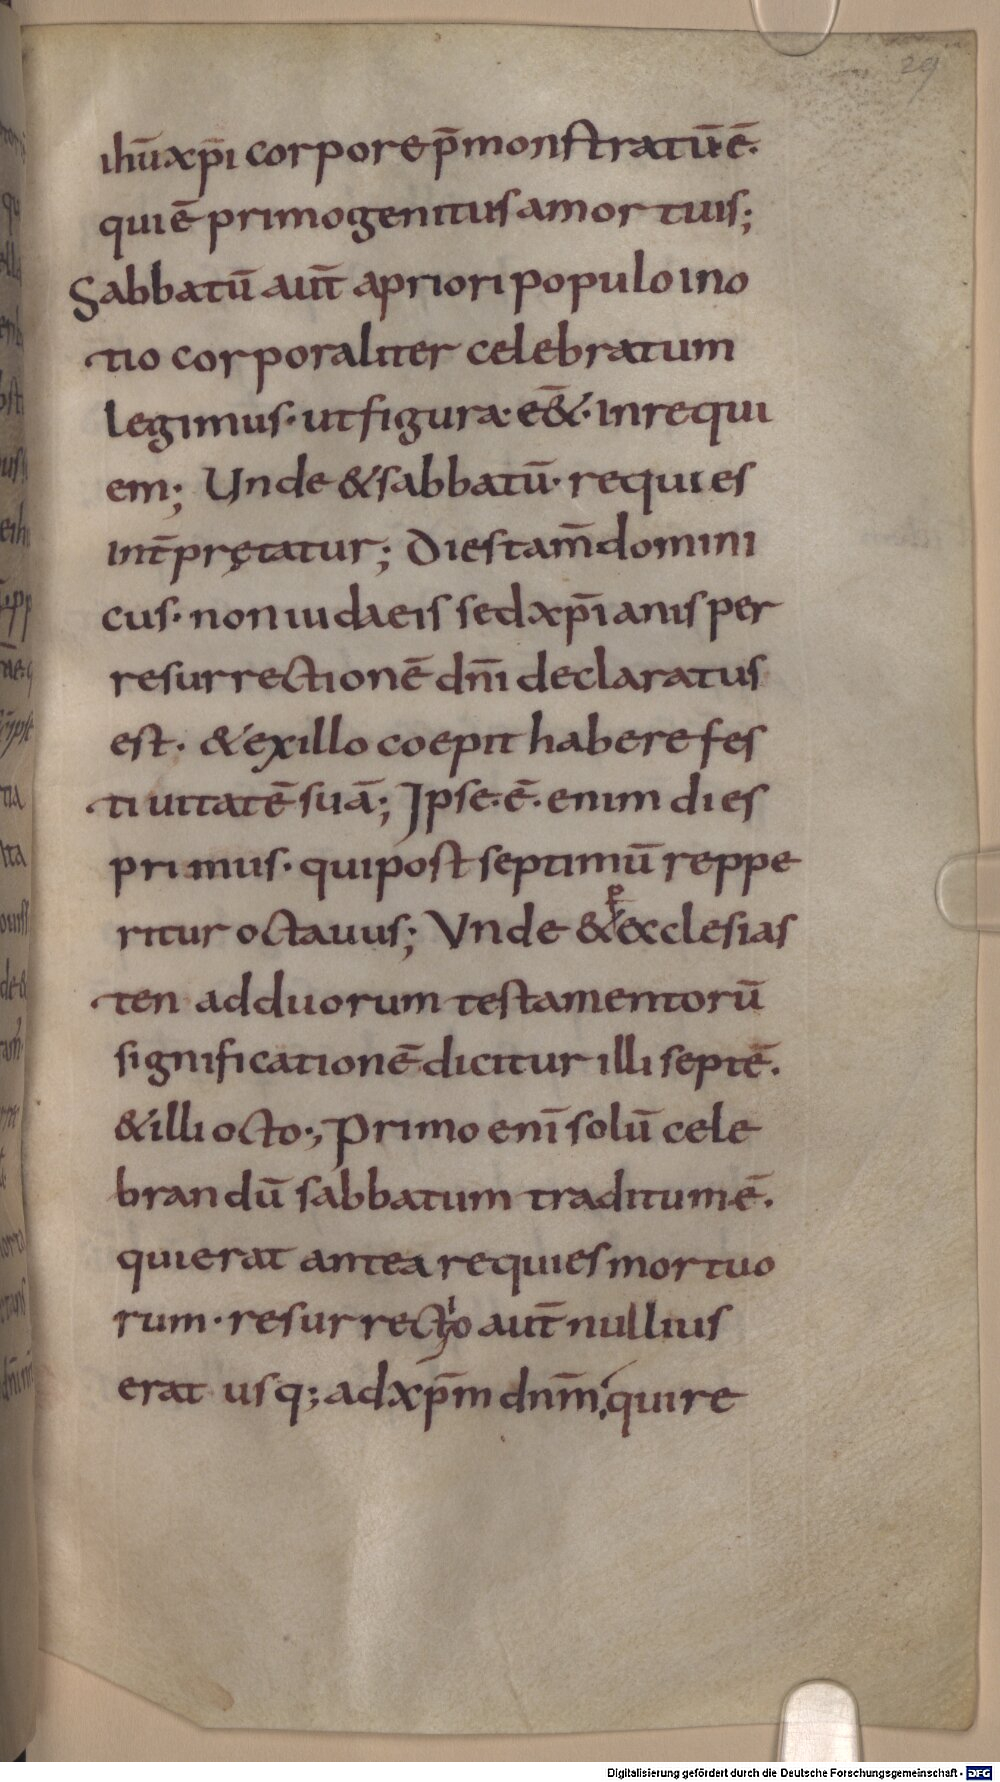 29
ihū xp̄i corpore p̄monstratū ē·
qui ē primogenitus a mortuis;
Sabbatū aut̄ a priori populo in o
tio corporaliter celebratum
legimus· ut figura· eēt· in requi
em; Unde & sabbatū· requies
int̄pretatur; Dies tam̄ domini
cus· non iudaeis sed xp̄ianis per
resurrectionē dn̄i declaratus
est· & ex illo coepit habere fes
tiuitatē suā; Ipse· ē· enim dies
primus· qui post septimū reppe
ritur octauus; Vnde & p exclesias
ten ad duorum testamentorū
significationē dicitur illi septē·
& illi octo·; Primo enī solū cele
brandū sabbatum traditum ē·
qui erat antea requies mortuo
rum· resurrectio aut̄ nullius
erat usq; ad xp̄m dn̄m, qui re
Digitalisierung gefördert durch die Deutsche Forschungsgemeinschaft - DFG